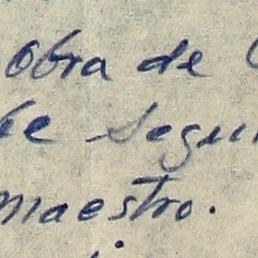 Obra de
de Segui
maestro.